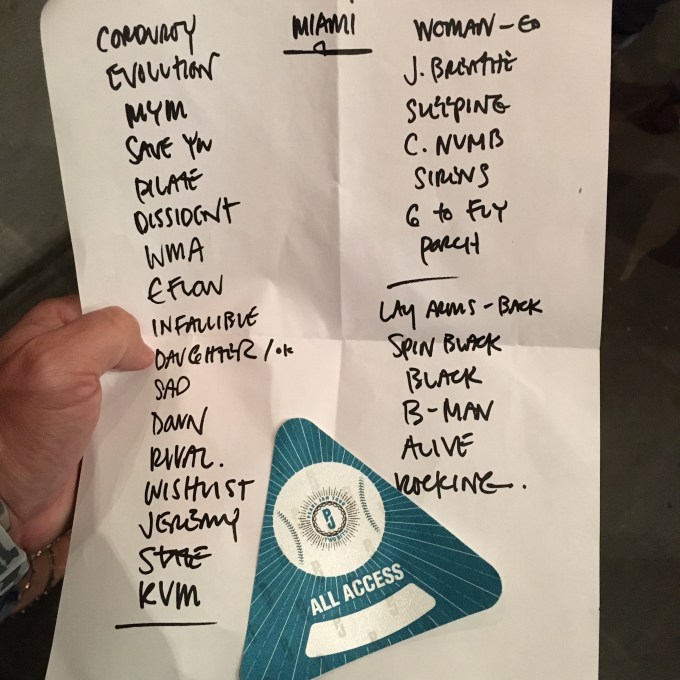 MIAMI
CORDUROY
EVOLUTION
MYM
SAVE YW
PILATE
DISSIDENT
WMA
E FLOW
INFALLIBLE
DAUGHTER / OK
SAD
DAWN
RIVAL.
WISHLIST
JEREMY
STATE
RVM
WOMAN - ED
J. BREATHE
SLEEPING
C. NUMB
SIRENS
G to FLY
PORCH
LAY ARMS - BACK
SPIN BLACK
BLACK
B-MAN
ALIVE
ROCKING.
PJ
ALL ACCESS